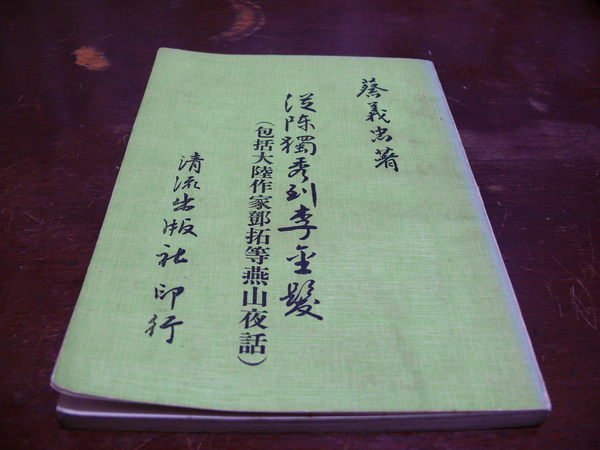 蔡義忠著
從陳獨秀到李金髮
(包括大陸作家鄧拓等燕山夜話)
清流出版社印行